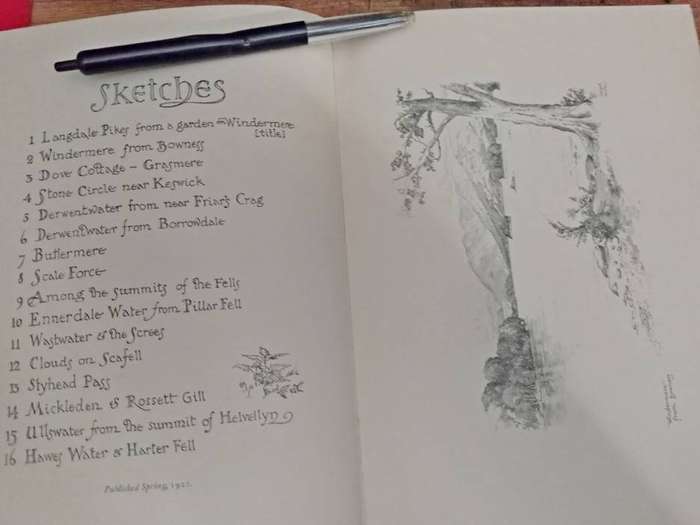 Sketches
1 Langdale Pikes from a garden - Windermere
[title]
2 Windermere from Bowness
3 Dove Cottage - Grasmere
4 Stone Circle near Keswick
5 Derwentwater from near Friar's Crag
6 Derwentwater from Borrowdale
7 Buttermere
8 Scale Force
9 Among the summits of the Fells
10 Ennerdale Water from Pillar Fell
11 Wastwater & the Screes
12 Clouds on Scafell
13 Styhead Pass
14 Mickleden & Rossett Gill
15 Ullswater from the summit of Helvellyn
16 Hawes Water & Harter Fell
Published Spring, 1921.